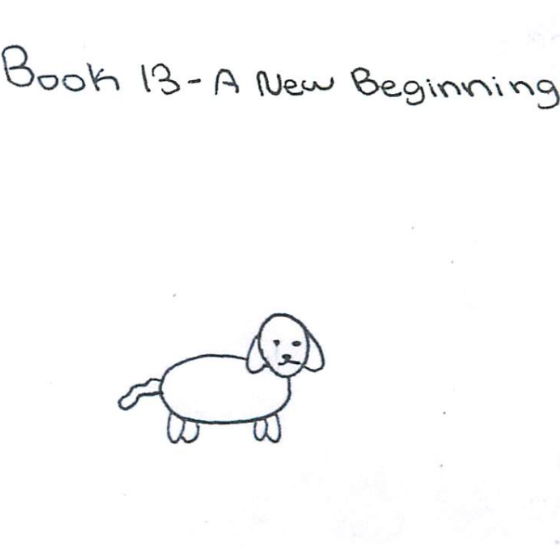 Book 13-A New Beginning